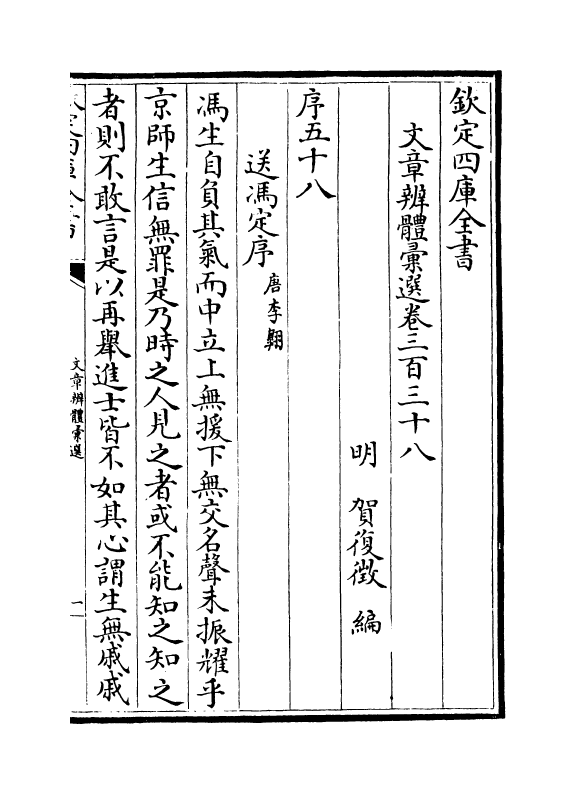 欽定四庫全書
文章辨體彙選卷三百三十八
明 賀復徵 編
序五十八
送馮定序 唐李翺
馮生自負其氣而中立上無援下無交名聲未振耀乎
京師生信無罪是乃時之人見之者或不能知之知之
者則不敢言是以再舉進士皆不如其心謂生無戚戚
文章辨體彙選
一